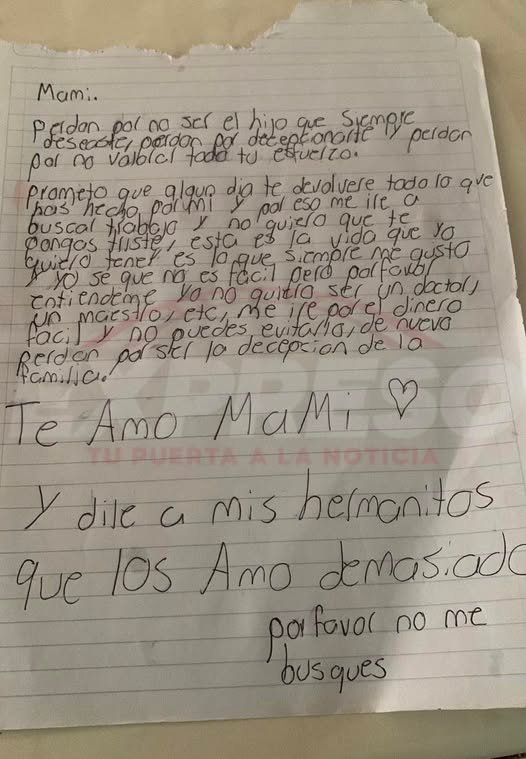 Mami.
Perdon por no ser el hijo que siempre
deseaste, perdon por decepcionarte y perdon
por no valorar todo tu esfuerzo.
Prometo que algun dia te devolvere todo lo que
hais hecho por mi y por eso me ire a
buscar trabajo y no quiero que te
pongas triste, esta es la vida que yo
quiero tener es lo que siempre me gusto
y yo se que no es facil pero porfavor
entiendeme yo no quiero ser un doctor,
un maestro, etc, me ire por el dinero
facil y no puedes evitarlo, de nuevo
perdon por ser la decepcion de la
familia.
Te Amo MaMi ♡
EXPRESO
TU PUERTA A LA NOTICIA
y dile a mis hermanitos
que los Amo demasiado
porfavor no me
busques